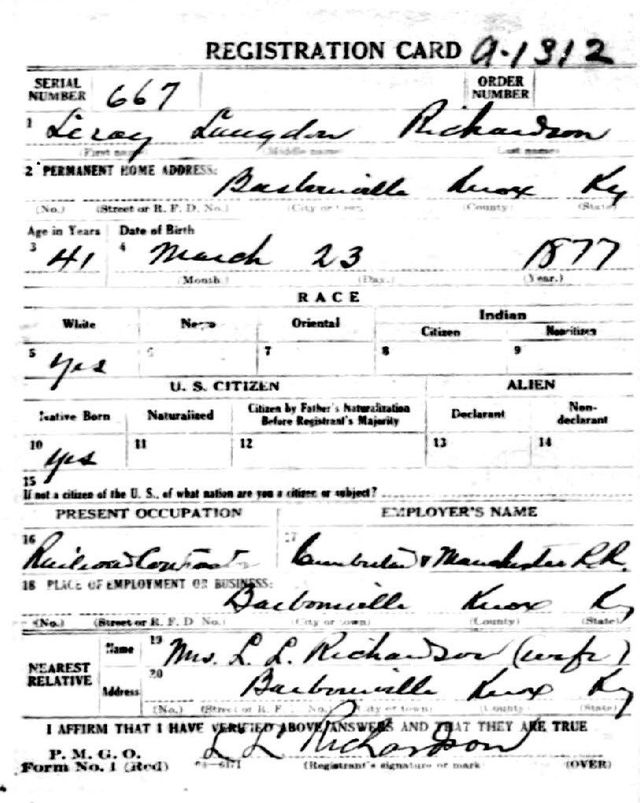 REGISTRATION CARD A-1312
SERIAL NUMBER 667 ORDER NUMBER
1 Leroy Langdon Richardson
(First name) (Middle name) (Last name)
2 PERMANENT HOME ADDRESS:
Barbourville Knox Ky
(No.) (Street or R. F. D. No.) (City or town) (County) (State)
Age in Years Date of Birth
3 41 4 March 23 1877
(Month) (Day.) (Year.)
RACE
White Negro Oriental Indian
Citizen Noncitizen
5 Yes 6 7 8 9
U. S. CITIZEN ALIEN
Native Born Naturalized Citizen by Father's Naturalization Before Registrant's Majority Declarant Non-declarant
10 Yes 11 12 13 14
15
If not a citizen of the U. S., of what nation are you a citizen or subject?
PRESENT OCCUPATION EMPLOYER'S NAME
16 Railroad Contractor 17 Cumberland & Manchester R.R.
18 PLACE OF EMPLOYMENT OR BUSINESS:
Barbourville Knox Ky
(No.) (Street or R. F. D. No.) (City or town) (County) (State)
NEAREST RELATIVE Name 19 Mrs. L. L. Richardson (wife)
Address 20 Barbourville Knox Ky
(No.) (Street or R. F. No.) (City or town) (County) (State)
I AFFIRM THAT I HAVE VERIFIED ABOVE ANSWERS AND THAT THEY ARE TRUE
P. M. G. O.
Form No. 1 (Red) L L Richardson
(Registrant's signature or mark) (OVER)